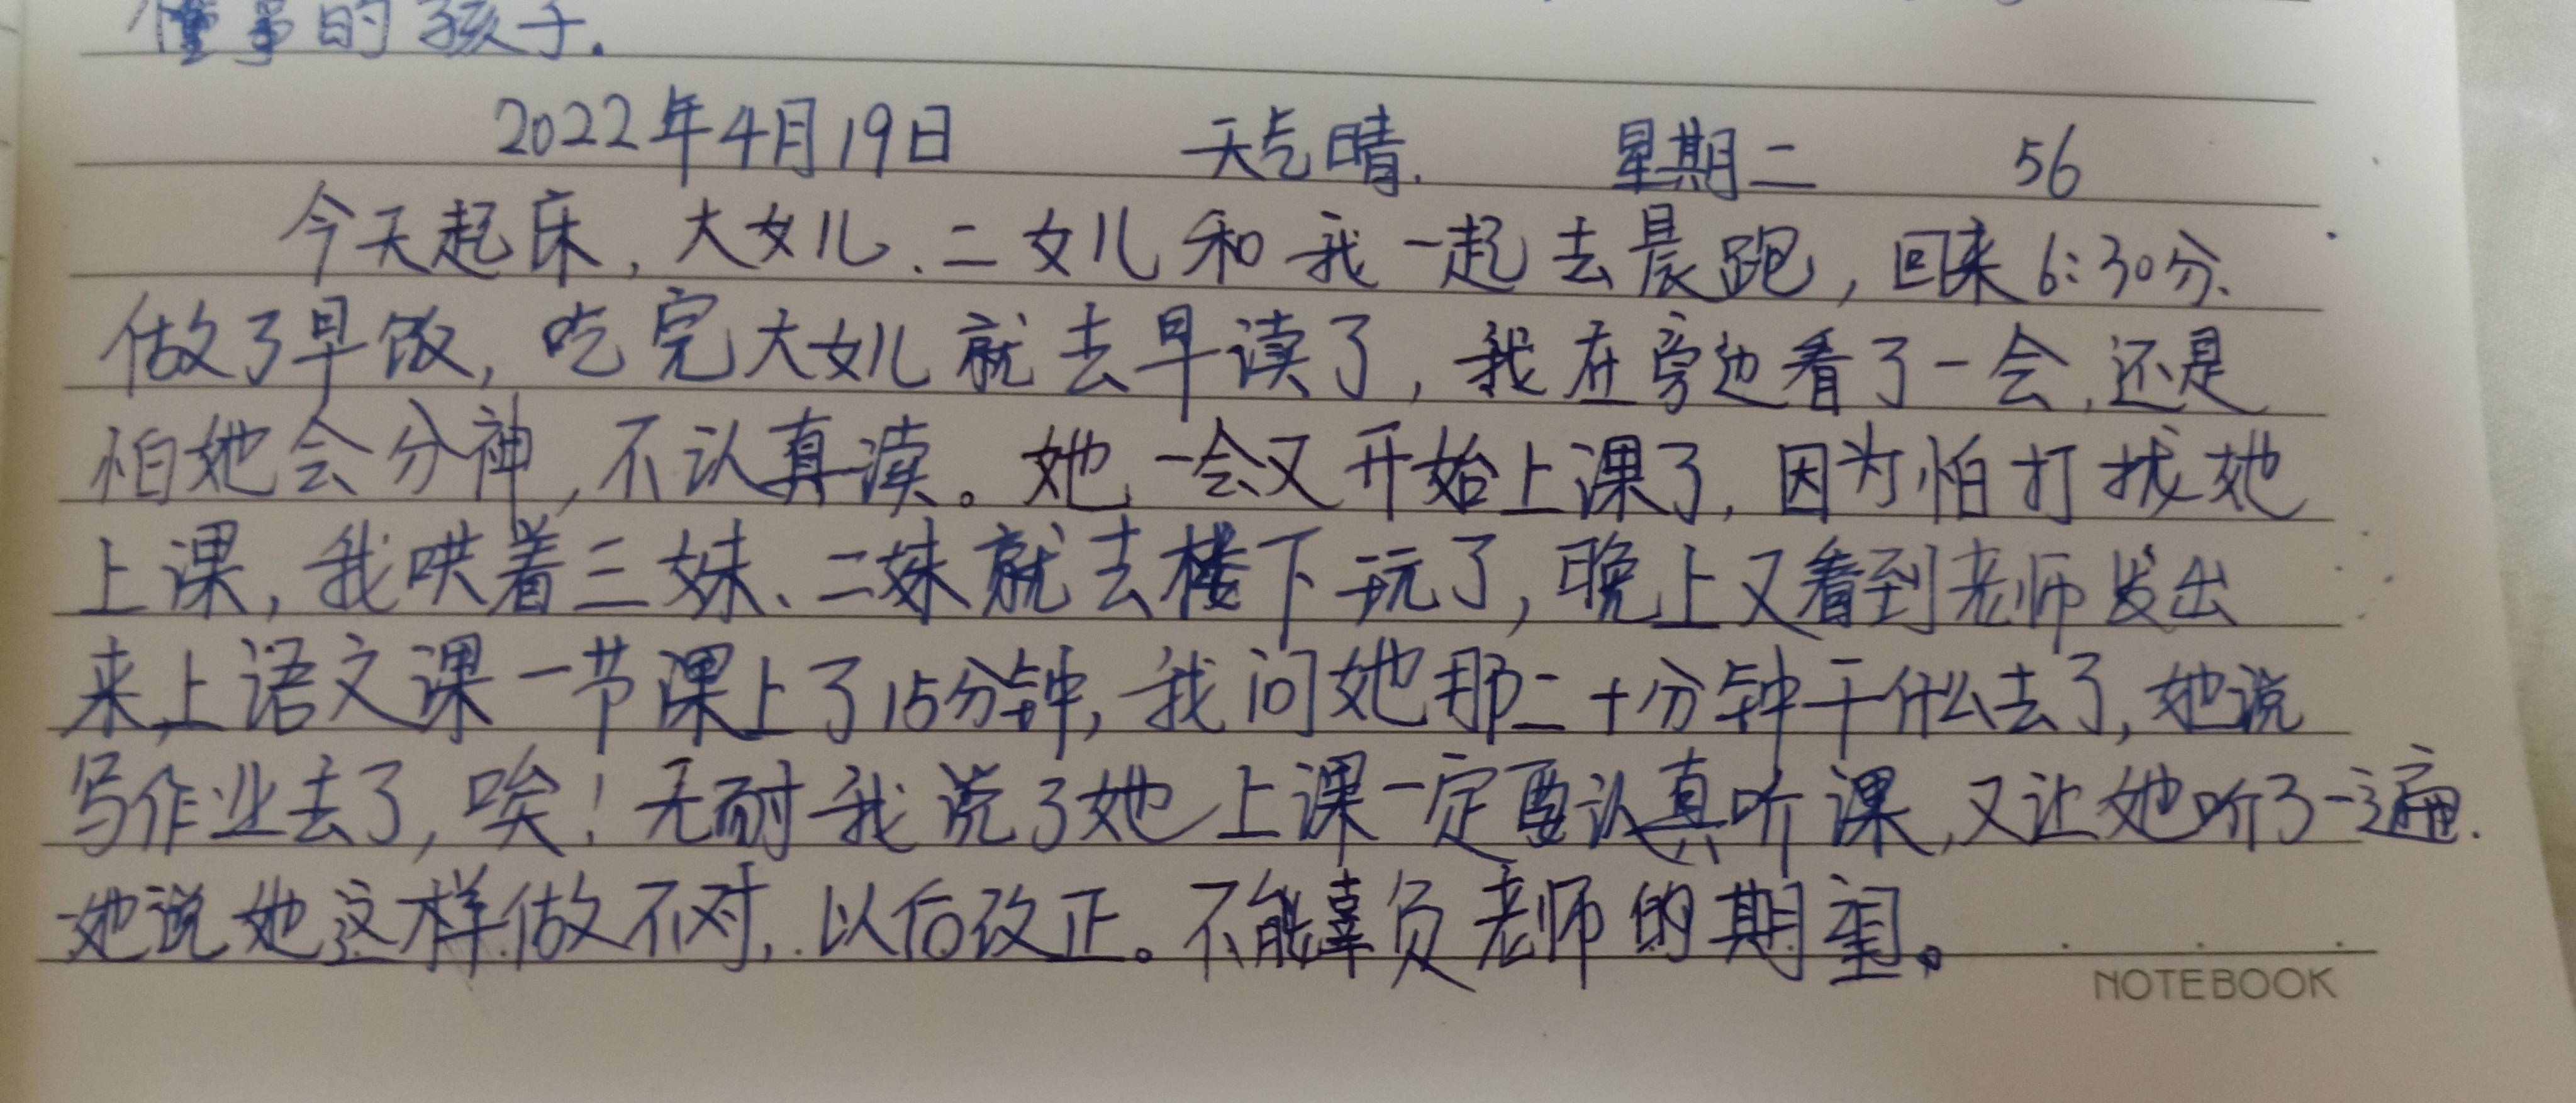 懂事的孩子.
2022年4月19日 天气晴. 星期二 56
今天起床,大女儿、二女儿和我一起去晨跑,回来6:30分.
做了早饭,吃完大女儿就去早读了,我在旁边看了一会,还是
怕她会分神,不认真读。她一会又开始上课了,因为怕打扰她
上课,我哄着三妹、二妹就去楼下玩了,晚上又看到老师发出
来上语文课一节课上了15分钟,我问她那二十分钟干什么去了,她说
写作业去了,唉!无耐我说了她上课一定要认真听课,又让她听了一遍.
她说她这样做不对,以后改正。不能辜负老师的期望。
NOTEBOOK